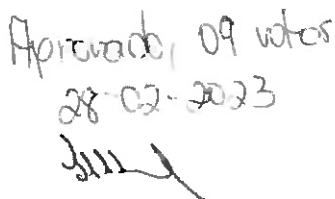 Aprovado, 09 votos
28-02-2023